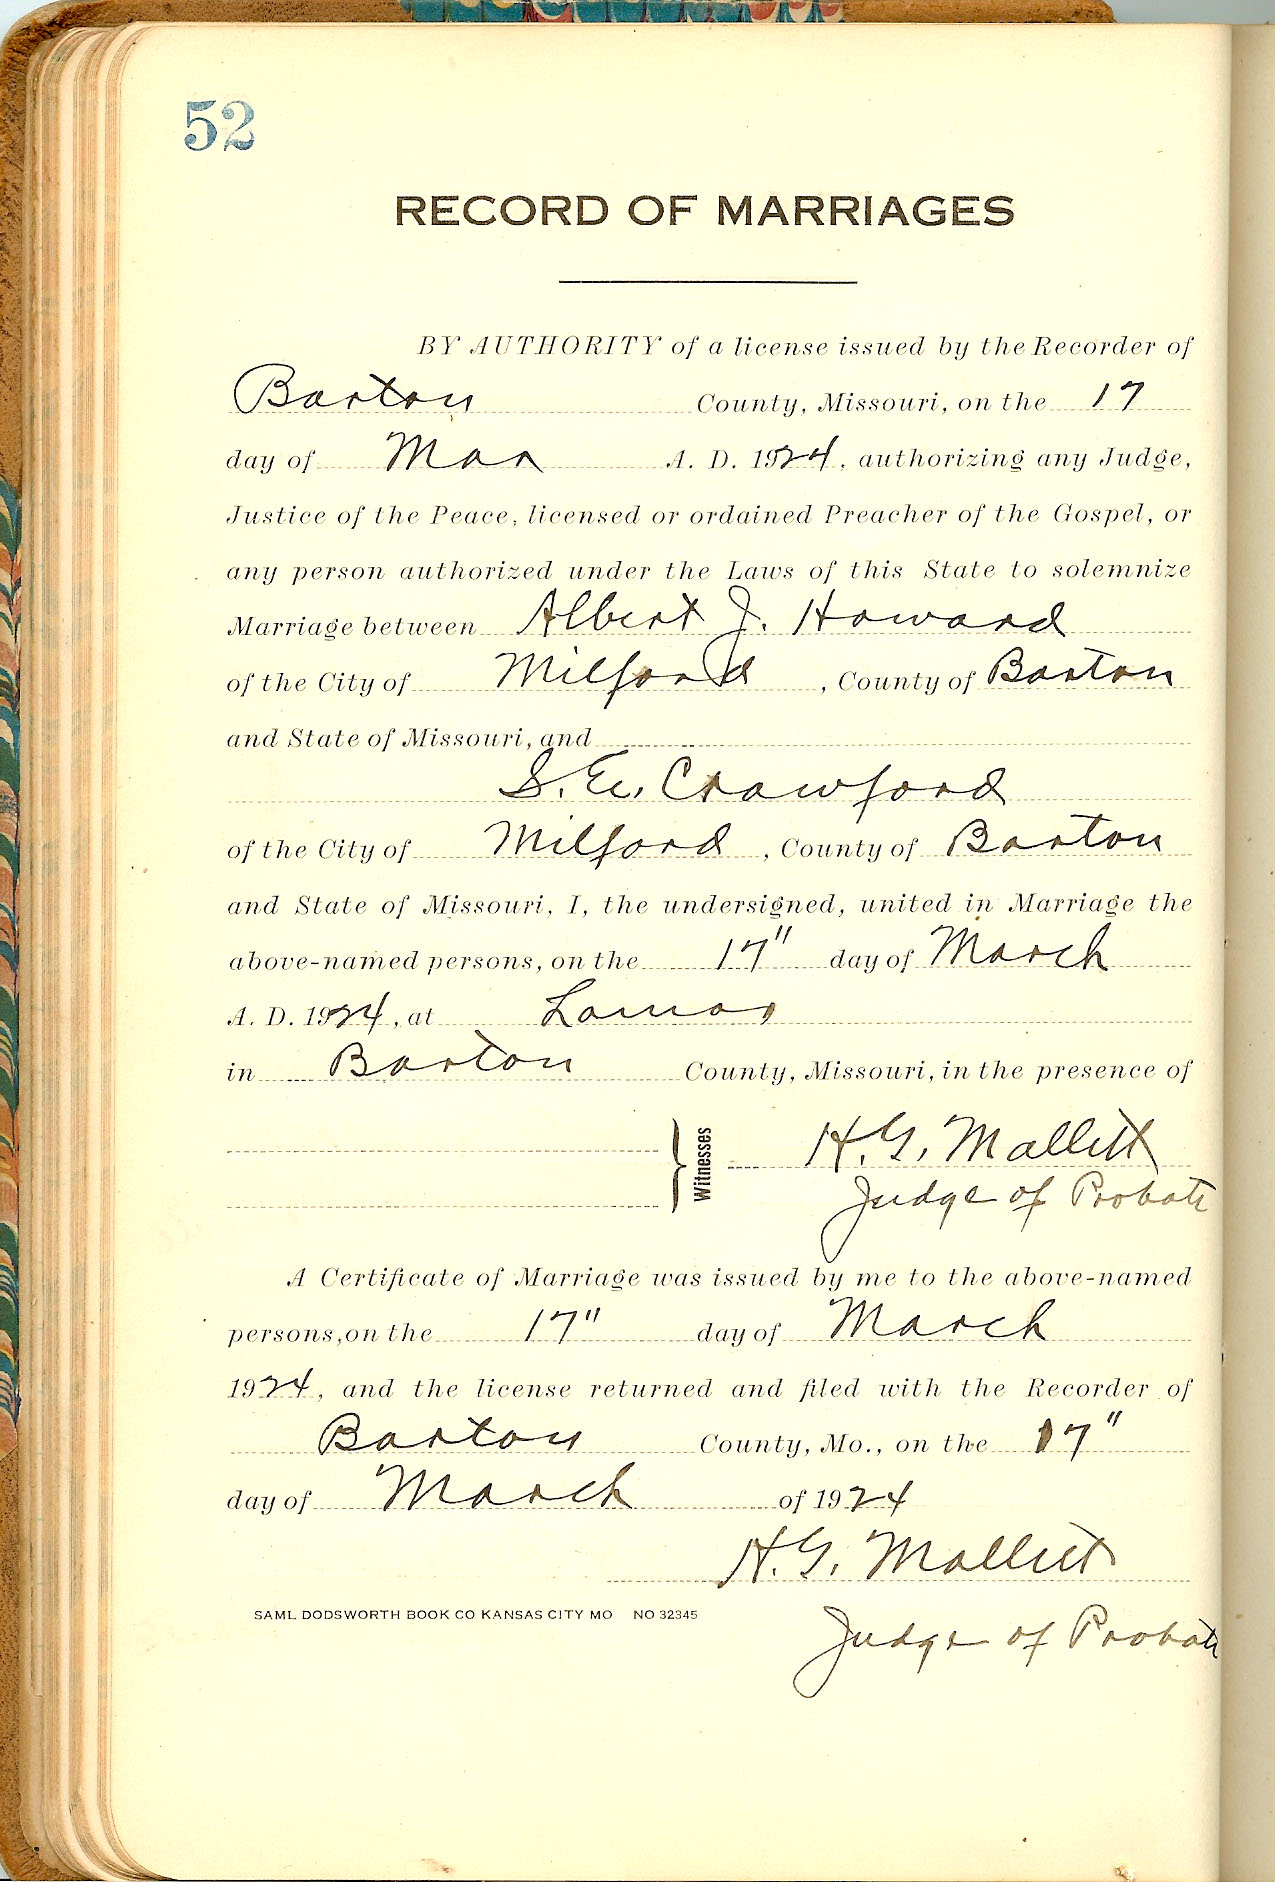 52
RECORD OF MARRIAGES
BY AUTHORITY of a license issued by the Recorder of
Barton County, Missouri, on the 17
day of Mar A. D. 1924, authorizing any Judge,
Justice of the Peace, licensed or ordained Preacher of the Gospel, or
any person authorized under the Laws of this State to solemnize
Marriage between Albert J. Howard
of the City of Milford, County of Barton
and State of Missouri, and
S. E. Crawford
of the City of Milford, County of Barton
and State of Missouri, I, the undersigned, united in Marriage the
above-named persons, on the 17" day of March
A. D. 1924, at Lamar
in Barton County, Missouri, in the presence of
Witnesses H. G. Mallett
Judge of Probate
A Certificate of Marriage was issued by me to the above-named
persons, on the 17" day of March
1924, and the license returned and filed with the Recorder of
Barton County, Mo., on the 17"
day of March of 1924
H. G. Mallett
SAML DODSWORTH BOOK CO KANSAS CITY MO NO 32345
Judge of Probate